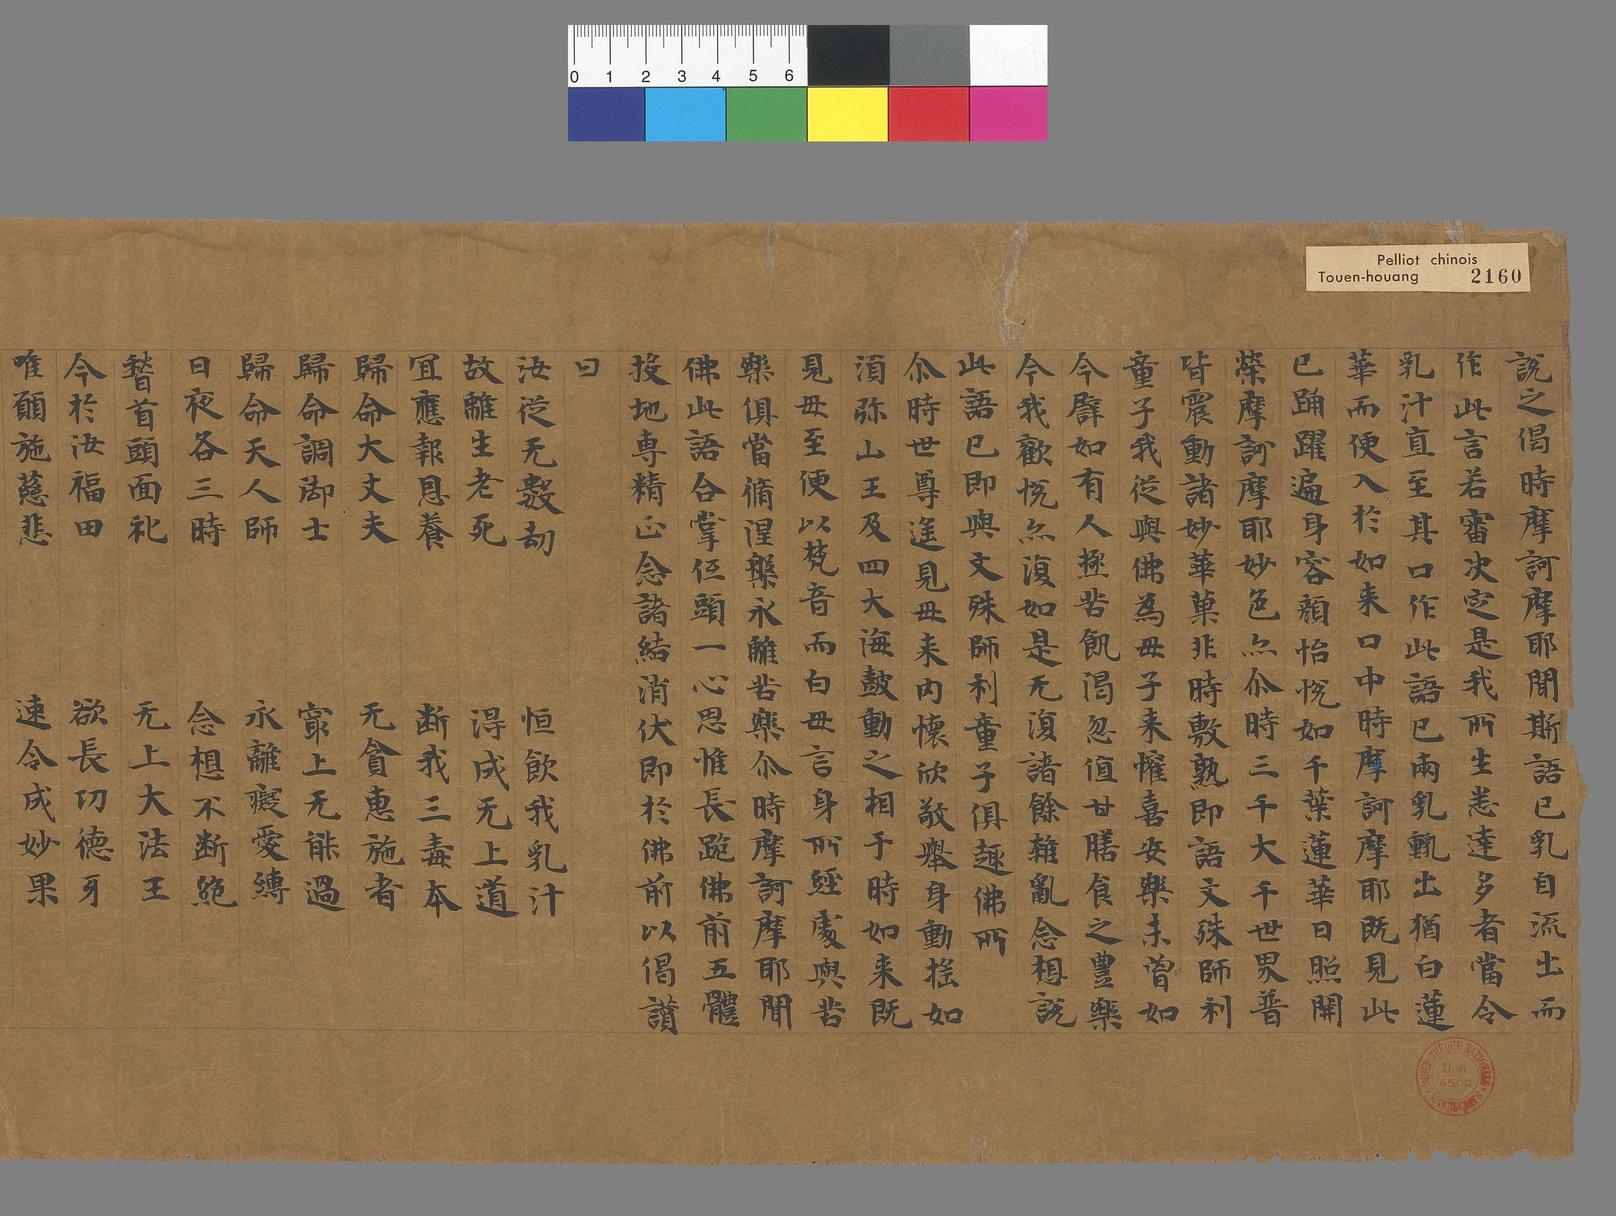 0 1 2 3 4 5 6
Pelliot chinois
Touen-houang 2160
說之偈時摩訶摩耶聞斯語已乳自流出而
作此言若審决定是我所生悉達多者當令
乳汁直至其口作此語已兩乳𣫍出猶白蓮
華而便入於如来口中時摩訶摩耶既見此
已踊躍遍身容顏怡悅如千葉蓮華日照開
榮摩訶摩耶妙色尒尒時三千大千世界普
皆震動諸妙華菓非時敷熟即語文殊師利
童子我從與佛為母子来懽喜安樂未曾如
今辟如有人極苦飢渴忽值甘膳食之豊樂
今我歡悅尒復如是无復諸餘雜亂念想說
此語已即與文殊師利童子俱趣佛所
尒時世尊遥見母来内懷欣敬舉身動摇如
湏弥山王及四大海皷動之相于時如来既
見母至便以梵音而白母言身所經處與苦
樂俱當脩涅槃永離苦樂尒時摩訶摩耶聞
佛此語合掌伍頭一心思惟長跪佛前五體
投地専精正念諸結消伏即於佛前以偈讃
曰
汝從无數劫 恒飲我乳汁
故離生老死 得成无上道
冝應報恩養 断我三毒本
歸命大丈夫 无貪惠施者
歸命調御士 㝡上无能過
歸命天人師 永離癡愛縛
日夜各三時 念想不断絶
稽首頭面礼 无上大法王
今於汝福田 欲長㓛德牙
唯願施慈悲 速令成妙果
BIBLIOTHÈQUE NATIONALE
Don
4502
MANUSCRITS